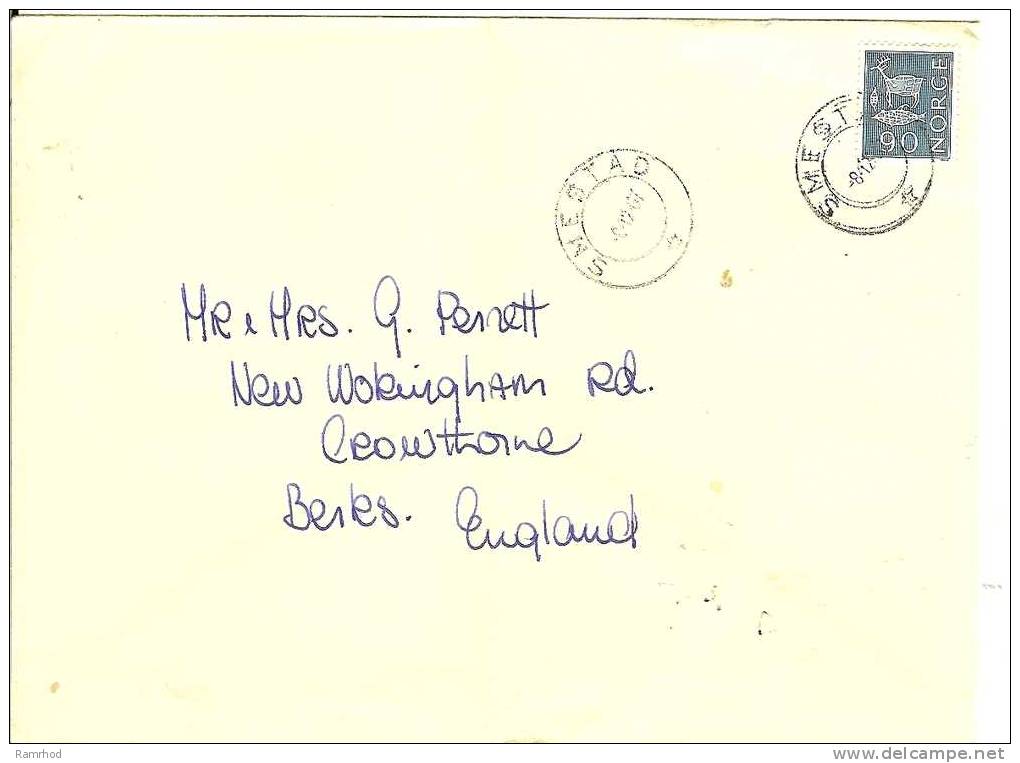 NORGE
90
SMESTAD
SMEST
Mr & Mrs. G. Perrett
New Wokingham Rd.
Crowthorne
Berks. England
Ramrhod
www.delcampe.net